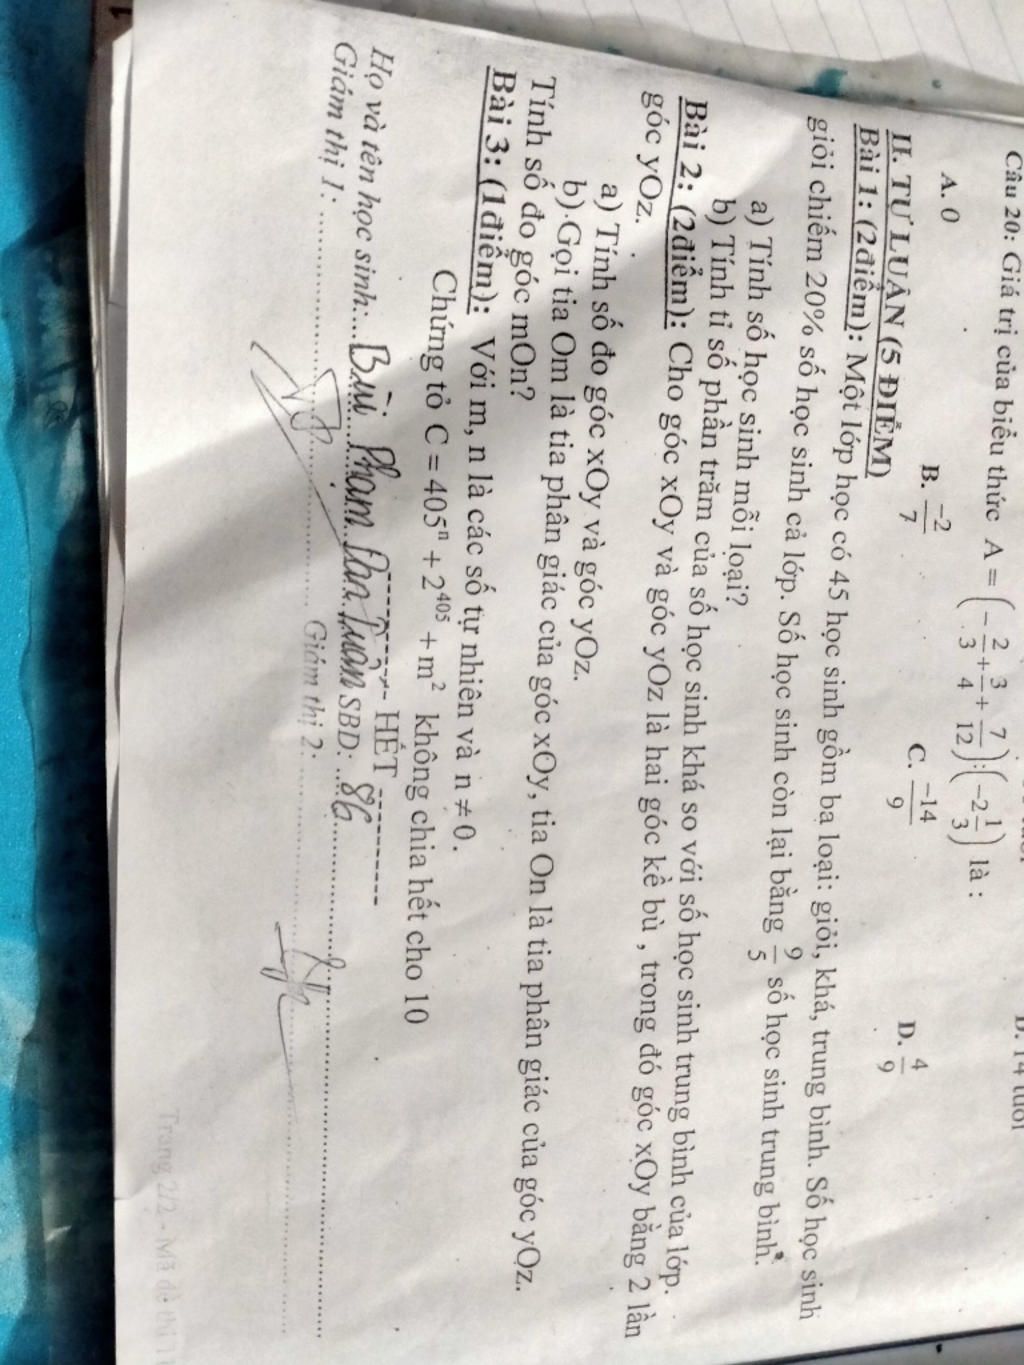 D. 14 tuổi
Câu 20: Giá trị của biểu thức A = (-2/3 + 3/4 + 7/12) : (-2 1/3) là :
A. 0 B. -2/7 C. -14/9 D. 4/9
II. TỰ LUẬN (5 ĐIỂM)
Bài 1: (2điểm): Một lớp học có 45 học sinh gồm ba loại: giỏi, khá, trung bình. Số học sinh
giỏi chiếm 20% số học sinh cả lớp. Số học sinh còn lại bằng 9/5 số học sinh trung bình.
a) Tính số học sinh mỗi loại?
b) Tính tỉ số phần trăm của số học sinh khá so với số học sinh trung bình của lớp.
Bài 2: (2điểm): Cho góc xOy và góc yOz là hai góc kề bù , trong đó góc xOy bằng 2 lần
góc yOz.
a) Tính số đo góc xOy và góc yOz.
b) Gọi tia Om là tia phân giác của góc xOy, tia On là tia phân giác của góc yOz.
Tính số đo góc mOn?
Bài 3: (1điểm): Với m, n là các số tự nhiên và n ≠ 0.
Chứng tỏ C = 405ⁿ + 2⁴⁰⁵ + m² không chia hết cho 10
---------- HẾT ----------
Họ và tên học sinh:... Bùi Phạm ... SBD: ...86...
Giám thị 1: ............ Giám thị 2: ............
Trang 2/2 - Mã đề thi